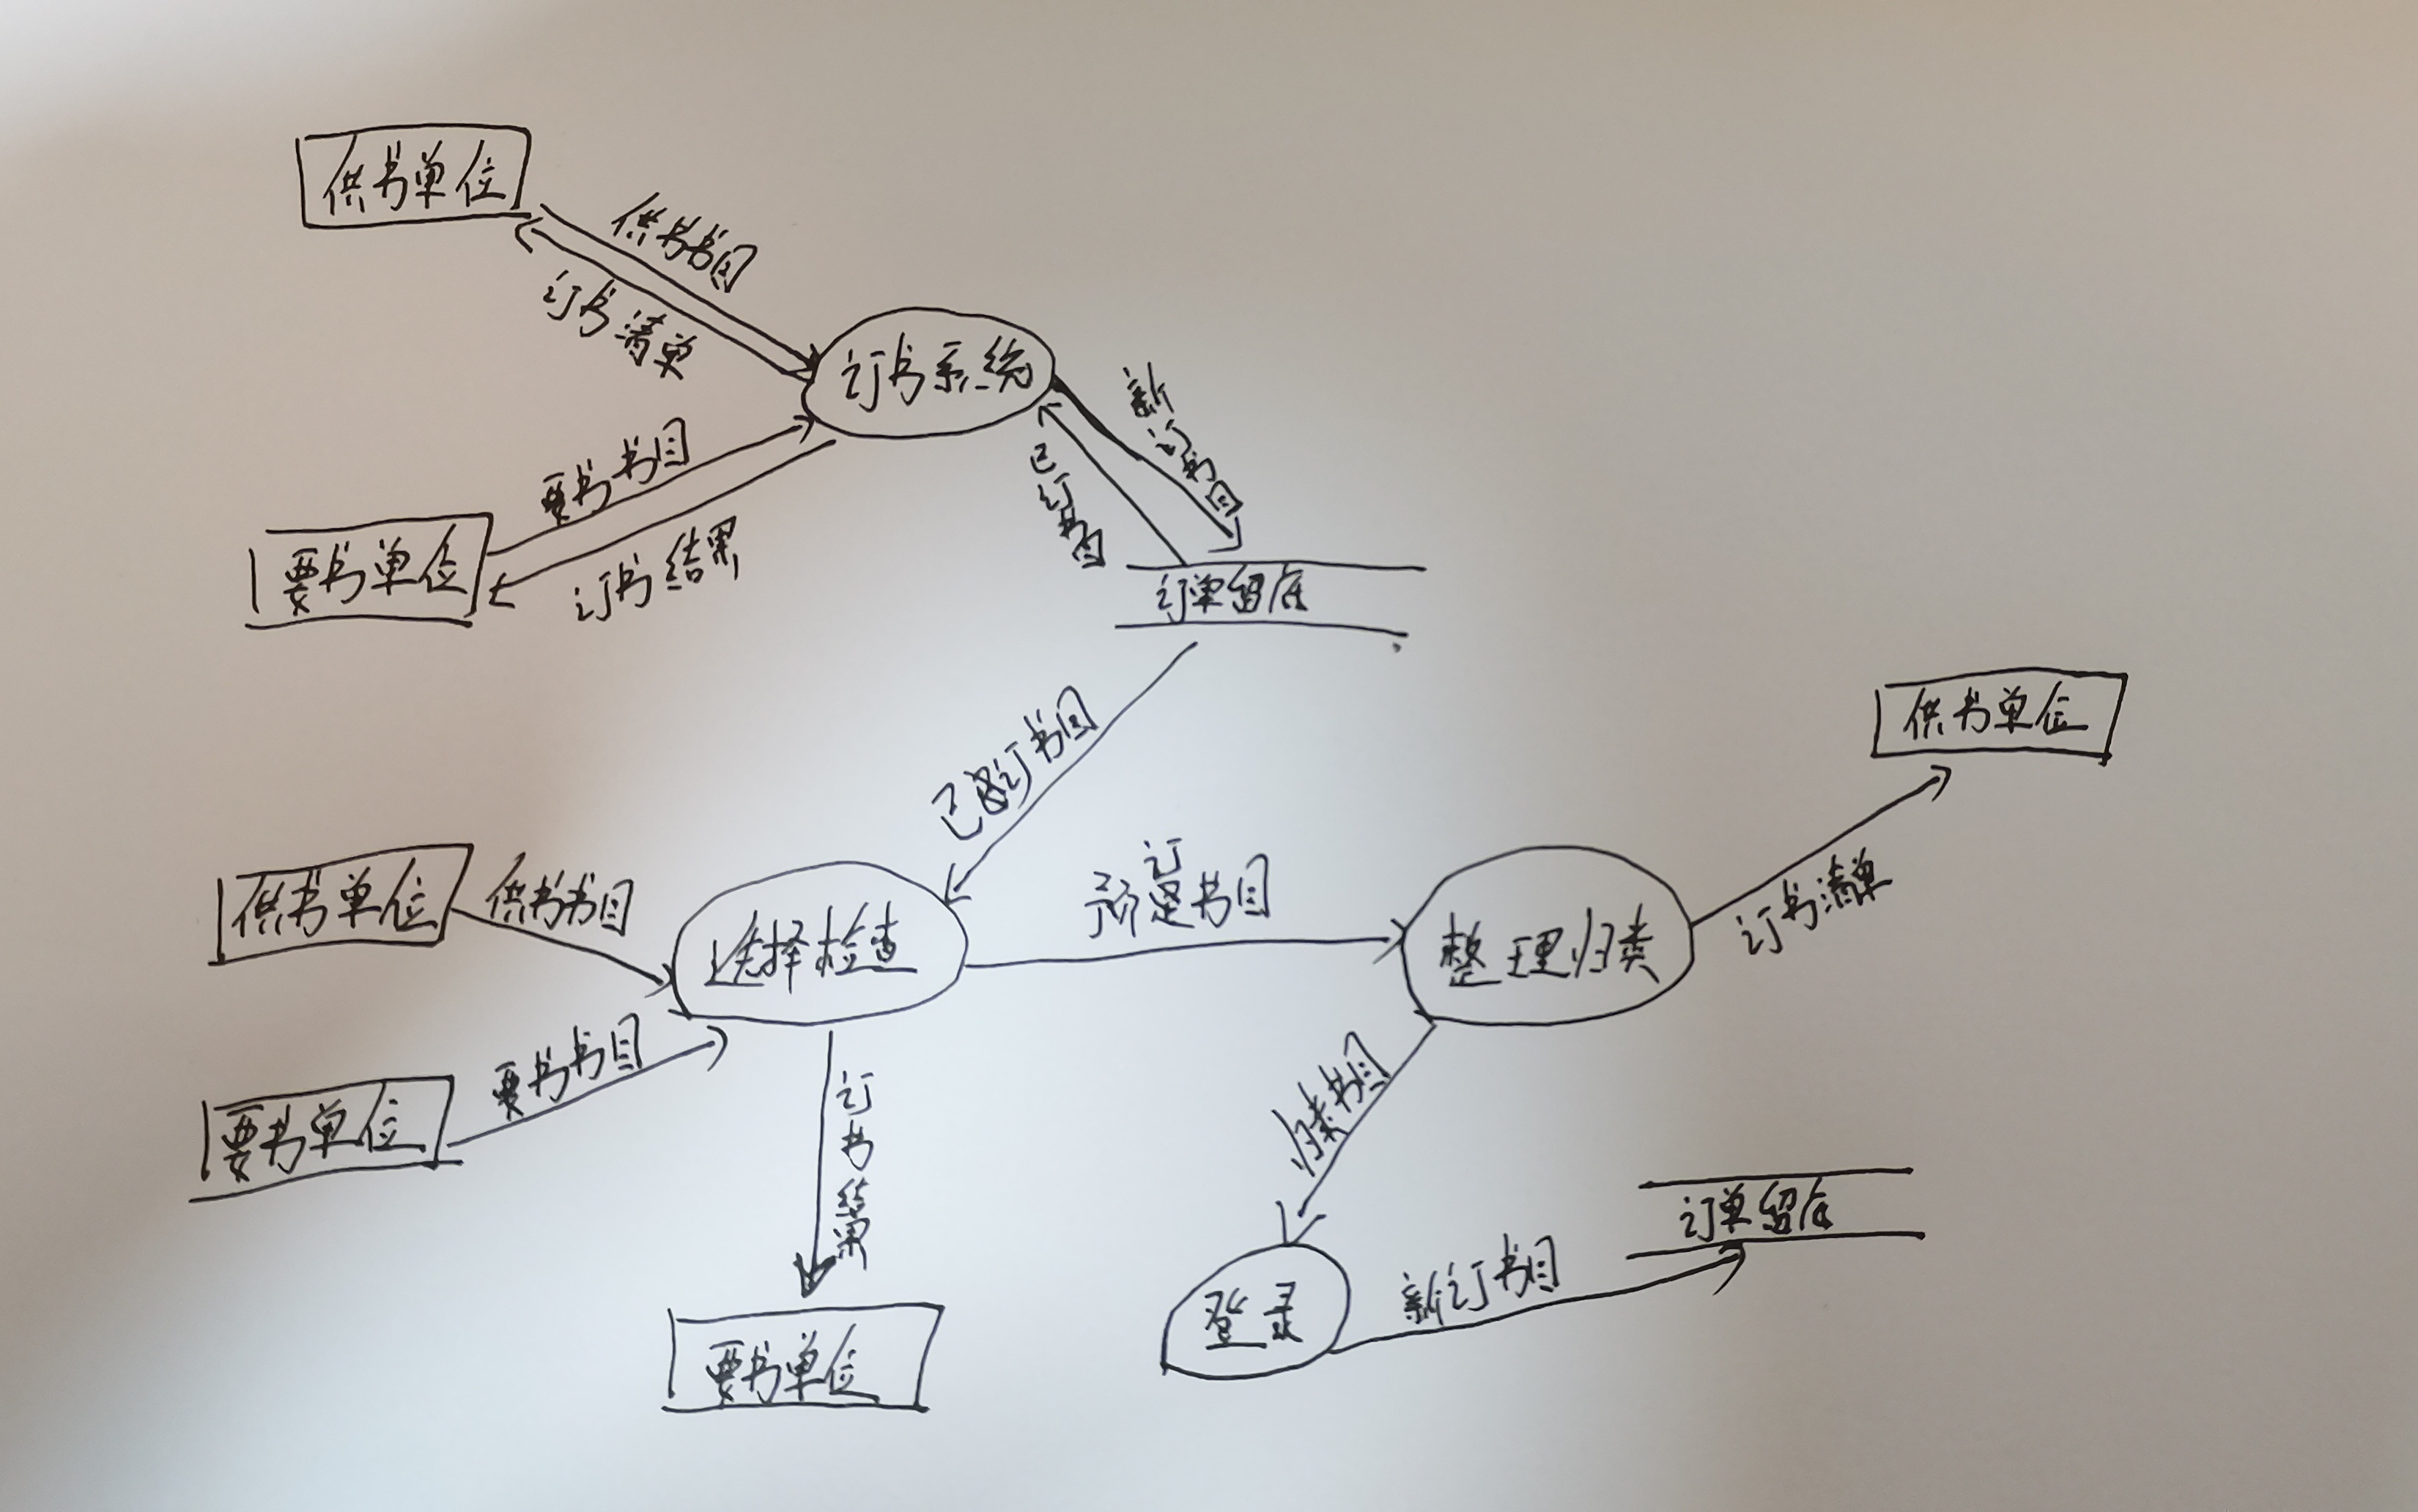 供书单位
供书书目
订书清单
订书系统
要书书目
要书单位
订书结果
新订书目
已订书目
订单留底
已订书目
供书单位
供书单位
供书书目
选择检查
预订书目
整理归类
订书清单
要书书目
要书单位
订书结果
归类书目
订单留底
登录
新订书目
要书单位